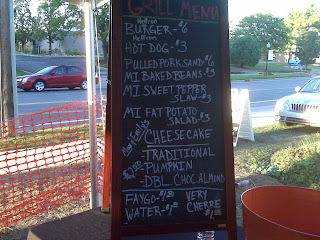 GRILL MENU
Heffron
BURGER - $6
Heffron
HOT DOG - $3
PULLED PORK SAND - $6
MI BAKED BEANS - $3
MI SWEET PEPPER
SLAW - $3
MI FAT POTATO
SALAD - $3
CHEESECAKE
$2.50
- TRADITIONAL
- PUMPKIN
- DBL CHOC ALMOND
FAYGO - $1.50
WATER - $1
VERY
CHERRE
$1.50